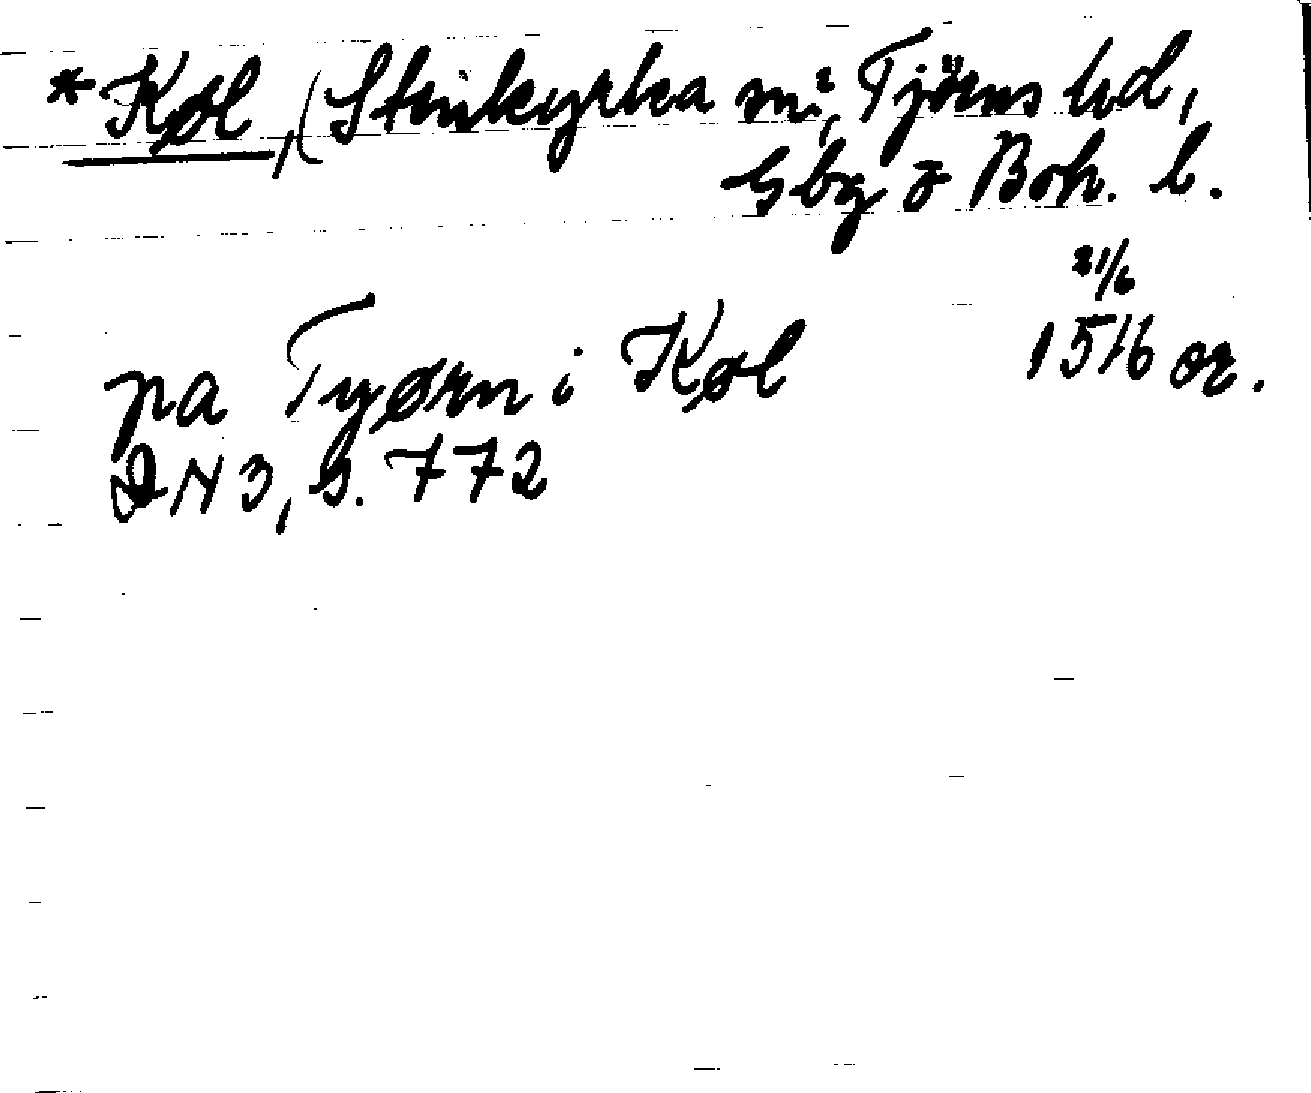 *Køl, (Stenkyrka sn?, Tjörns hd,
Gbg o Boh. l.
21/6
pa Tyørn i Køl 1516 or.
DN 3, s. 772